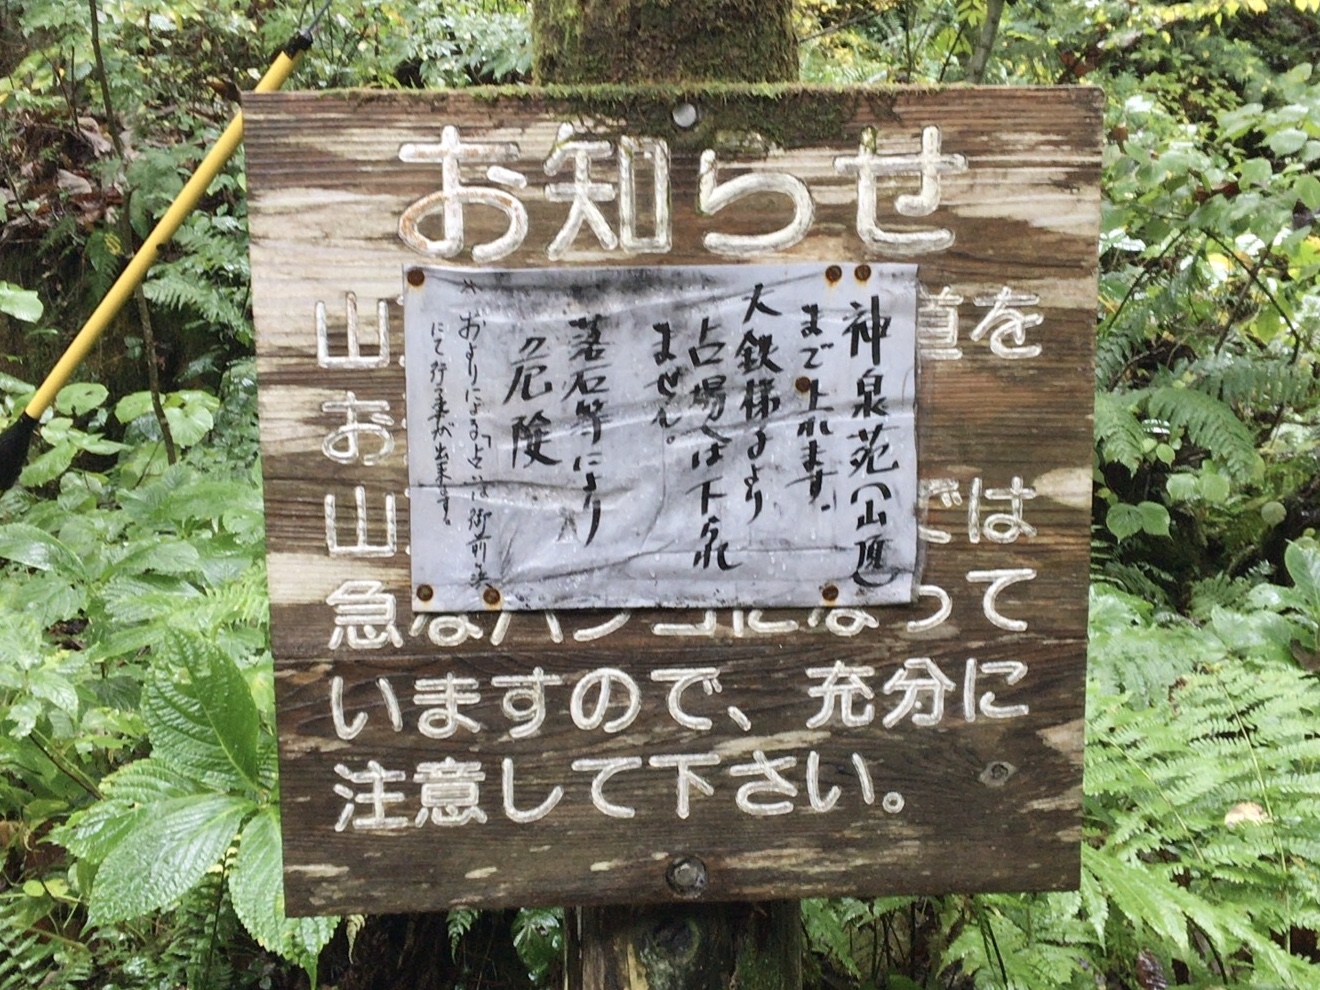 お知らせ
山 道を
お
山 では
急なハシゴになって
いますので、充分に
注意して下さい。
神泉苑(山頂)
まで上れます。
大鉄梯子より
占場へは下られ
ません。
落石等により
危険
※おまいりによる「占」は御前
にて行事が出来ます。